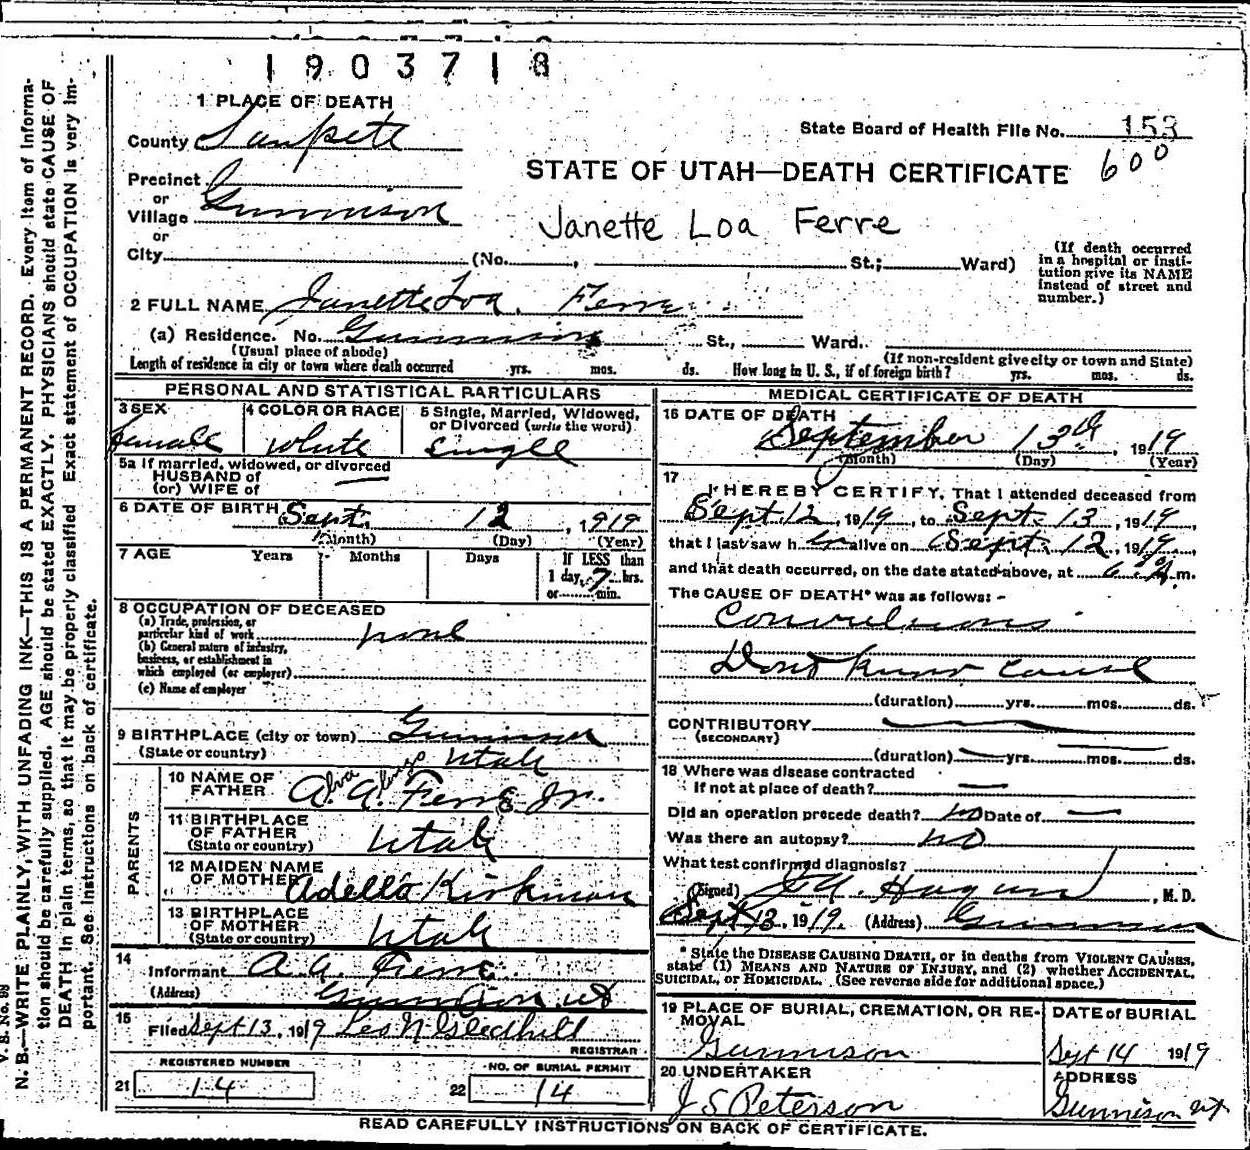 1903718
1 PLACE OF DEATH
County Sanpete
State Board of Health File No. 153
600
STATE OF UTAH—DEATH CERTIFICATE
Precinct
or
Village Gunnison
or
Janette Loa Ferre
City (No. , St.; Ward)
(If death occurred in a hospital or institution give its NAME instead of street and number.)
2 FULL NAME Janette Loa. Ferre
(a) Residence. No. Gunnison St., Ward.
(Usual place of abode) (If non-resident give city or town and State)
Length of residence in city or town where death occurred yrs. mos. ds. How long in U. S., if of foreign birth? yrs. mos. ds.
PERSONAL AND STATISTICAL PARTICULARS
3 SEX female
4 COLOR OR RACE white
5 Single, Married, Widowed, or Divorced (write the word) Single
5a If married, widowed, or divorced
HUSBAND of
(or) WIFE of
6 DATE OF BIRTH Sept. 12, 1919
(Month) (Day) (Year)
7 AGE Years Months Days If LESS than
1 day, 7 hrs.
or min.
8 OCCUPATION OF DECEASED
(a) Trade, profession, or
particular kind of work none
(b) General nature of industry,
business, or establishment in
which employed (or employer)
(c) Name of employer
9 BIRTHPLACE (city or town) Gunnison
(State or country) Utah
PARENTS
10 NAME OF
FATHER Alva Alonzo Ferre Jr.
11 BIRTHPLACE
OF FATHER
(State or country) Utah
12 MAIDEN NAME
OF MOTHER Adella Kirkman
13 BIRTHPLACE
OF MOTHER
(State or country) Utah
14
Informant A. A. Ferre
(Address) Gunnison, ut
15
Filed Sept 13, 1919 Leo N Gledhill
REGISTRAR
REGISTERED NUMBER
21 14
NO. OF BURIAL PERMIT
22 14
MEDICAL CERTIFICATE OF DEATH
16 DATE OF DEATH
September 13th, 1919
(Month) (Day) (Year)
17
I HEREBY CERTIFY, That I attended deceased from
Sept. 12, 1919, to Sept. 13, 1919,
that I last saw her alive on Sept. 12, 1919,
and that death occurred, on the date stated above, at A.m.
The CAUSE OF DEATH* was as follows:
Convulsions
Dont know cause
(duration) yrs. mos. ds.
CONTRIBUTORY
(SECONDARY)
(duration) yrs. mos. ds.
18 Where was disease contracted
If not at place of death?
Did an operation precede death? no Date of
Was there an autopsy? no
What test confirmed diagnosis?
(Signed) J. A. Hagan, M. D.
Sept 13, 1919. (Address) Gunnison
*State the DISEASE CAUSING DEATH, or in deaths from VIOLENT CAUSES,
state (1) MEANS AND NATURE OF INJURY, and (2) whether ACCIDENTAL,
SUICIDAL, or HOMICIDAL. (See reverse side for additional space.)
19 PLACE OF BURIAL, CREMATION, OR RE-
MOVAL
Gunnison
DATE of BURIAL
Sept 14 1919
20 UNDERTAKER
J S Peterson
ADDRESS
Gunnison ut
READ CAREFULLY INSTRUCTIONS ON BACK OF CERTIFICATE.
V. S. No. 98
N. B.—WRITE PLAINLY, WITH UNFADING INK—THIS IS A PERMANENT RECORD. Every item of informa-
tion should be carefully supplied. AGE should be stated EXACTLY. PHYSICIANS should state CAUSE OF
DEATH in plain terms, so that it may be properly classified Exact statement of OCCUPATION is very im-
portant. See instructions on back of certificate.